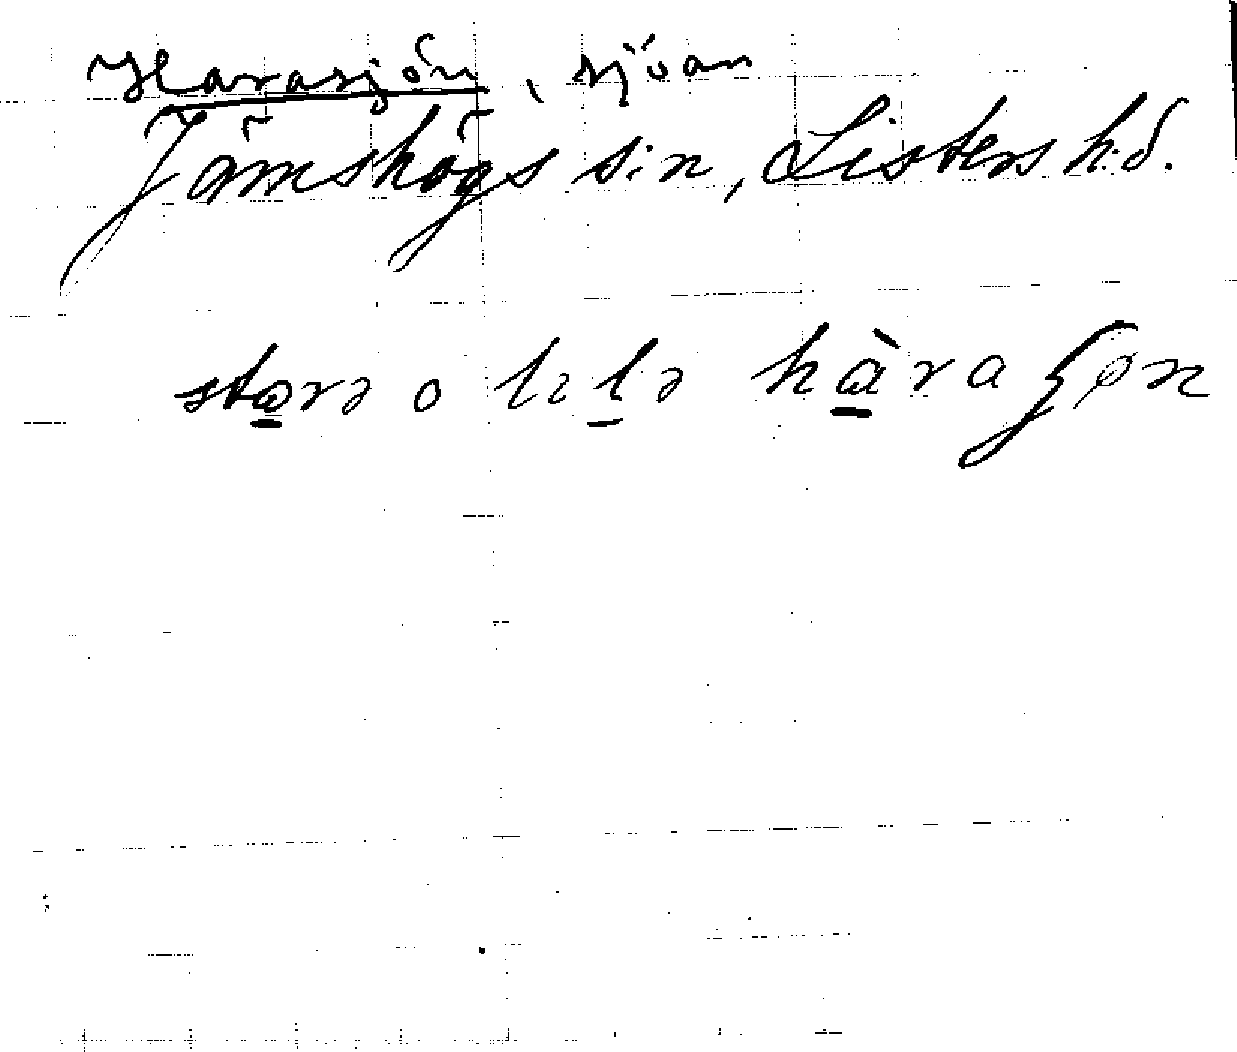 Harasjön, sjöar
Jämshögs s:n, Listers h:d.
storə o lılə hàraʃøn